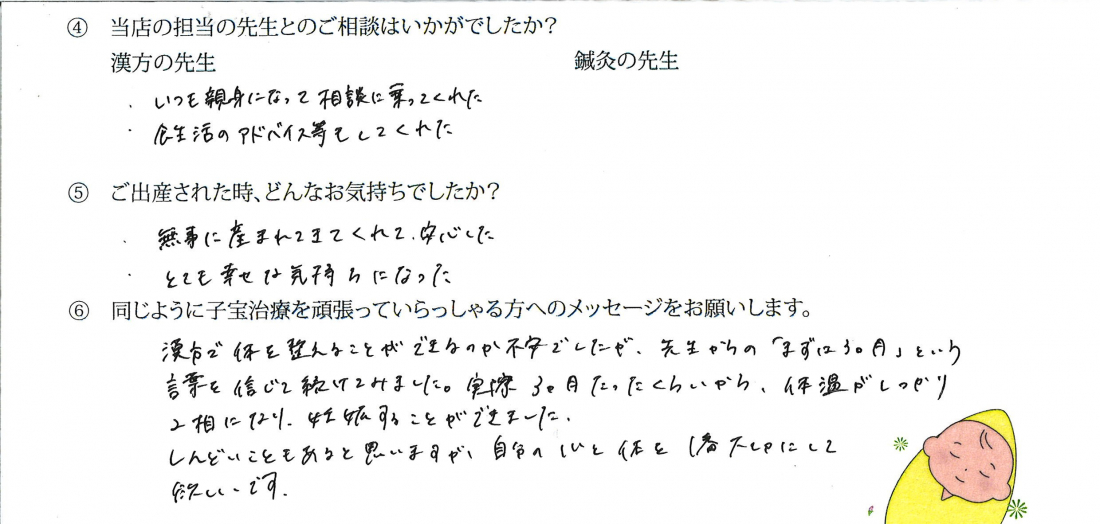 ④ 当店の担当の先生とのご相談はいかがでしたか?
漢方の先生 鍼灸の先生
・いつも親身になって相談に乗ってくれた
・食生活のアドバイス等もしてくれた
⑤ ご出産された時、どんなお気持ちでしたか?
・無事に産まれてきてくれて、安心した
・とても幸せな気持ちになった
⑥ 同じように子宝治療を頑張っていらっしゃる方へのメッセージをお願いします。
漢方で体を整えることができるのか不安でしたが、先生からの「まずは3ヶ月」という
言葉を信じて続けてみました。実際3ヶ月たったくらいから、体温がしっかり
2相になり、妊娠することができました。
しんどいこともあると思いますが、自分の心と体を1番大切にして
欲しいです。